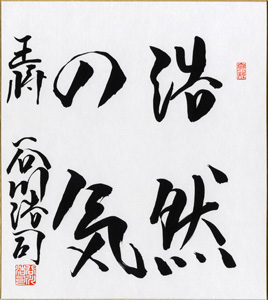 浩然
の気
王将 谷川浩司